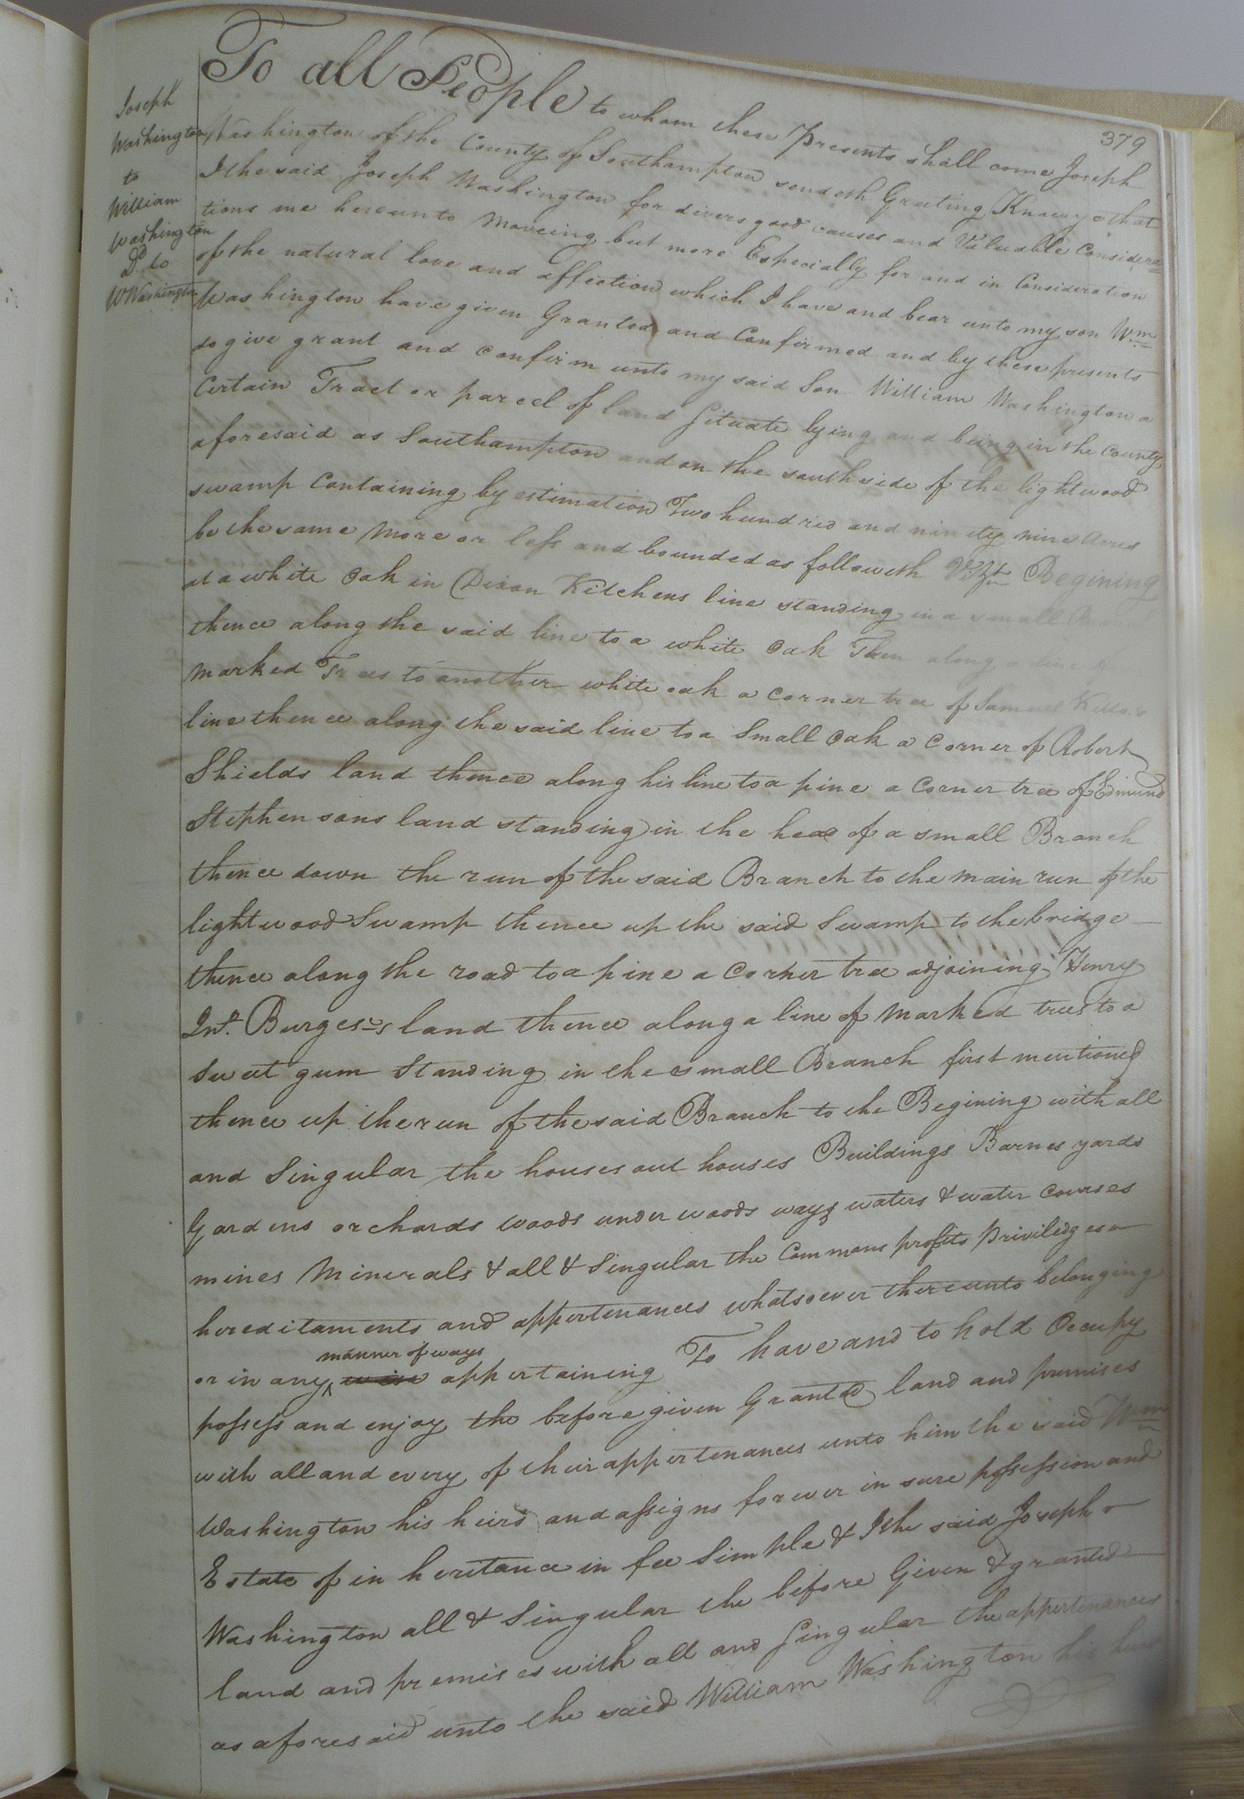 379
Joseph
Washington
to
William
Washington
Dd to
WWashington
To all People to whom these Presents shall come Joseph
Washington of the County of Southampton sendeth Greeting Know ye that
I the said Joseph Washington for divers good causes and Valuable Considera
tions me hereunto Moveing but more Especially for and in Consideration
of the natural love and affection which I have and bear unto my son Wm
Washington have given Granted and Confirmed and by these presents
do give grant and confirm unto my said Son William Washington a
Certain Tract or parcel of land Situate lying and being in the County
aforesaid as Southampton and on the south side of the lightwood
swamp Containing by estimation Two hundred and ninety nine Acres
be the same More or less and bounded as followeth Vizt Begining
at a white Oak in Dixon Kitchens line standing in a small
thence along the said line to a white Oak Then along a line of
marked Trees to another white oak a corner tree of Samuel
line thence along the said line to a Small Oak a Corner of Robert
Shields land thence along his line to a pine a Corner tree of Edmund
Stephensons land standing in the head of a small Branch
thence down the run of the said Branch to the main run of the
lightwood Swamp thence up the said Swamp to the bridge
thence along the road to a pine a Corner tree adjoining Henry
Jno. Burgess land thence along a line of Marked trees to a
Sweet gum Standing in the small Branch first mentioned
thence up the run of the said Branch to the Begining with all
and Singular the houses out houses Buildings Barnes yards
Gardens orchards woods under woods ways waters & water Courses
mines Minerals & all & Singular the Commons profits Priviledges
hereditaments and appertenances whatsoever thereunto belonging
manner of ways
or in any appertaining To have and to hold Occupy
possess and enjoy the before given Granted land and premises
with all and every of their appertenances unto him the said Wm
Washington his heirs and assigns forever in sure possession and
Estate of in heritance in fee Simple & I the said Joseph
Washington all & Singular the before Given & granted
land and premises with all and Singular the appertenances
as aforesaid unto the said William Washington his heirs